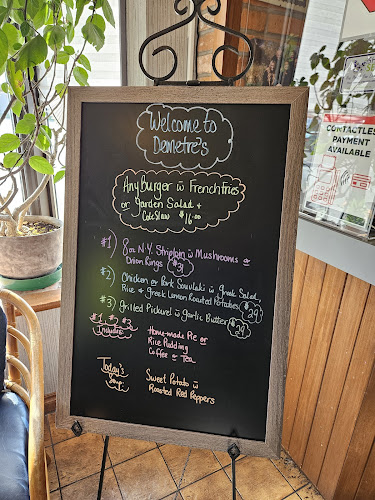 Welcome to
Demetre's
Any Burger w French fries
or garden Salad +
Cole Slaw $16.00
#1) 8oz N.Y. Striploin w Mushrooms or
Onion Rings $31
#2) Chicken or Pork Souvlaki w Greek Salad,
Rice + Greek Lemon Roasted Potatoes $29
#3) Grilled Pickerel w Garlic Butter $29
#1, #2, #3
Includes
Home-made Pie or
Rice Pudding
Coffee or Tea
Today's
Soup
Sweet Potato w
Roasted Red Peppers
CONTACTLESS
PAYMENT
AVAILABLE